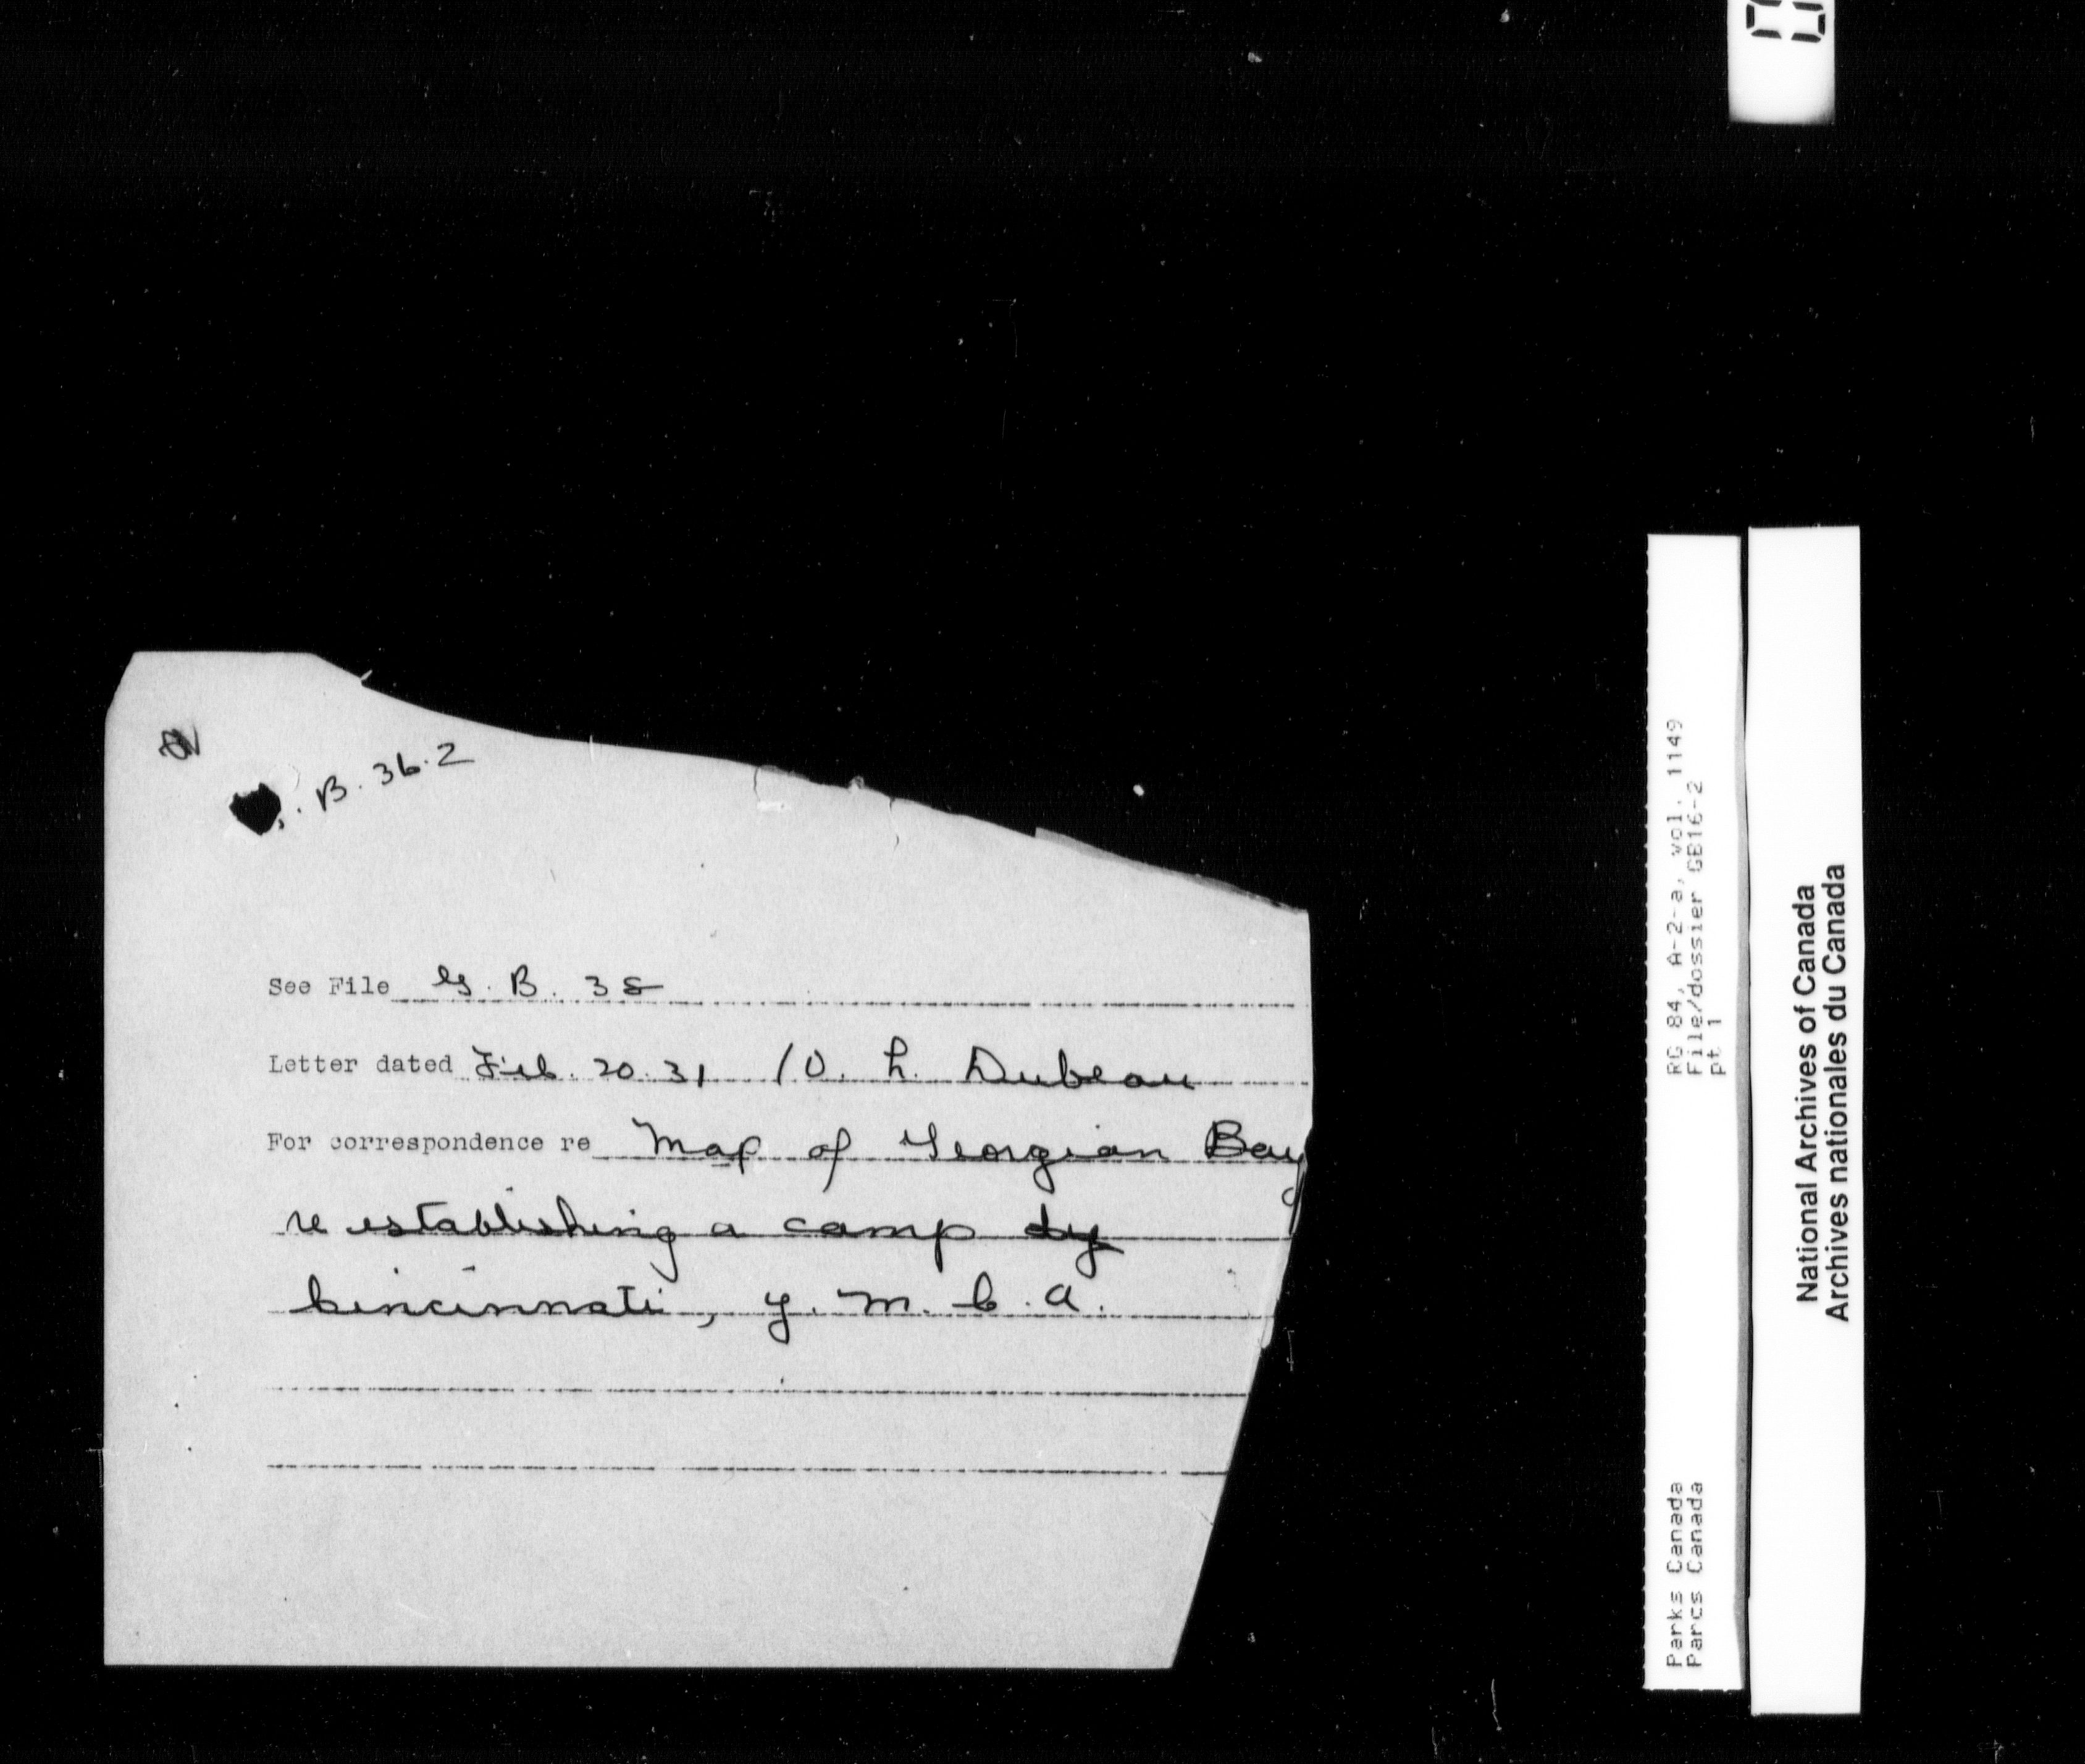 . B. 36.2
See File G. B. 38
Letter dated Feb. 20. 31 / O. L. Dubeau
For correspondence re Map of Georgian Bay
re establishing a camp by
Cincinnati, Y. M. C. A.
RG 84, A-2-a, vol. 1149
File/dossier GB16-2
pt 1
Parks Canada
Parcs Canada
National Archives of Canada
Archives nationales du Canada